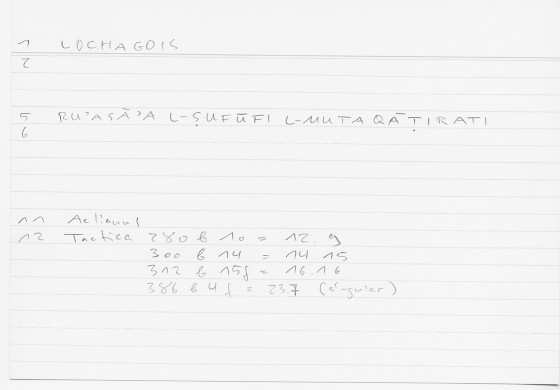 1 LOCHAGOIS
2
5 RUʾASĀʾA L-ṢUFŪFI L-MUTAQĀṬIRATI
6
11 Aelianus
12 Tactica 280 b 10 = 12.9
300 b 14 = 14 15
312 b 15f = 16.16
386 b 4 f = 237 (singular)